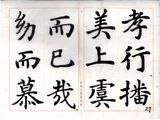 孝行播
美上虞
而已哉
幼而慕
27